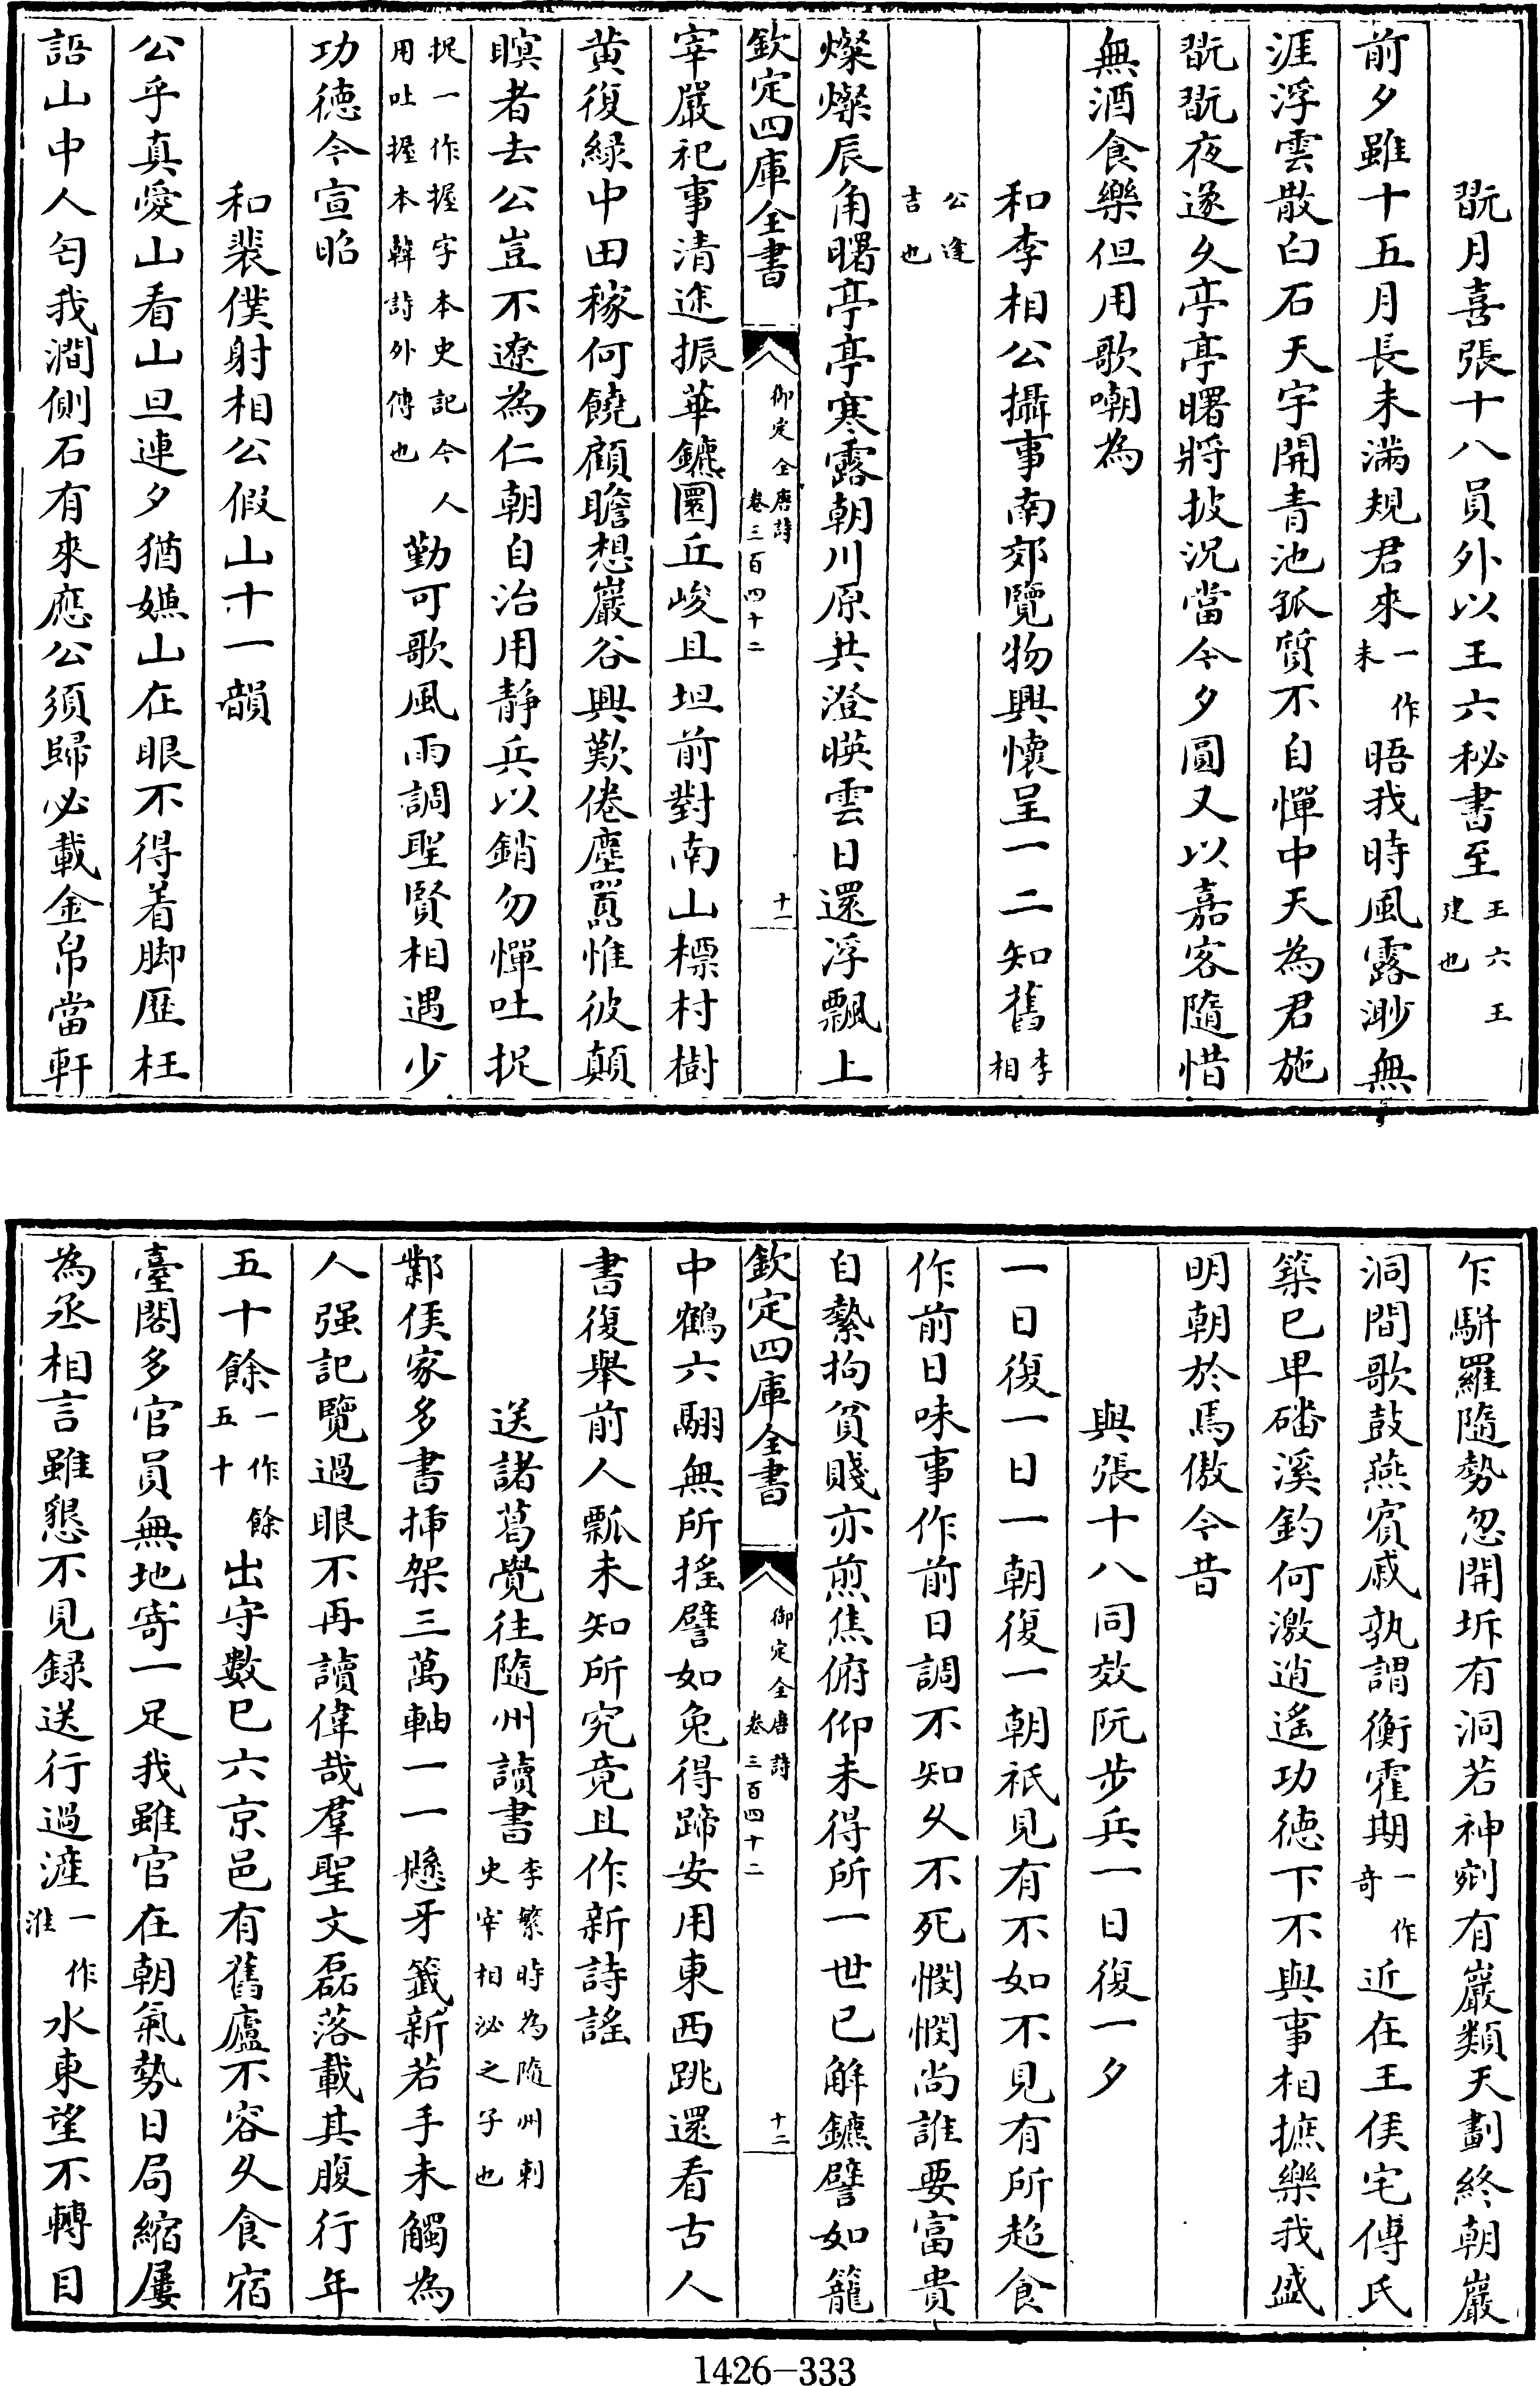 翫月喜張十八員外以王六秘書至王六王建也
前夕雖十五月長未滿規君來一作未晤我時風露渺無
涯浮雲散白石天宇開青池孤質不自憚中天為君施
翫翫夜遂久亭亭曙將披況當今夕圓又以嘉客隨惜
無酒食樂但用歌嘲為
和李相公攝事南郊覽物興懷呈一二知舊李相
公逢吉也
燦燦辰角曙亭亭寒露朝川原共澄暎雲日還浮飄上
欽定四庫全書 御定全唐詩卷三百四十二 十一
宰嚴祀事清途振華鑣圜丘峻且坦前對南山標村樹
黄復綠中田稼何饒顧瞻想巖谷興歎倦塵囂惟彼顛
瞑者去公豈不遼為仁朝自治用靜兵以銷勿憚吐捉
捉一作握字本史記今人用吐握本韓詩外傳也勤可歌風雨調聖賢相遇少
功德今宣昭
和裴僕射相公假山十一韻
公乎真愛山看山旦連夕猶嫌山在眼不得着脚歷枉
語山中人匄我澗側石有來應公須歸必載金帛當軒
乍駢羅隨勢忽開坼有洞若神剜有巖類天劃終朝巖
洞間歌鼓燕賓戚孰謂衡霍期一作奇近在王侯宅傅氏
築已卑磻溪釣何激逍遙功德下不與事相摭樂我盛
明朝於焉傲今昔
與張十八同效阮步兵一日復一夕
一日復一日一朝復一朝祇見有不如不見有所超食
作前日味事作前日調不知久不死憫憫尚誰要富貴
自縶拘貧賤亦煎焦俯仰未得所一世已解鑣譬如籠
欽定四庫全書 御定全唐詩卷三百四十二 十二
中鶴六翮無所搖譬如兔得蹄安用東西跳還看古人
書復舉前人瓢未知所究竟且作新詩謠
送諸葛覺往隨州讀書李繁時為隨州刺史宰相泌之子也
鄴侯家多書揷架三萬軸一一懸牙籤新若手未觸為
人强記覽過眼不再讀偉哉羣聖文磊落載其腹行年
五十餘一作餘五十出守數已六京邑有舊廬不容久食宿
臺閣多官員無地寄一足我雖官在朝氣勢日局縮屢
為丞相言雖懇不見録送行過滻一作滻水東望不轉目
1426-333